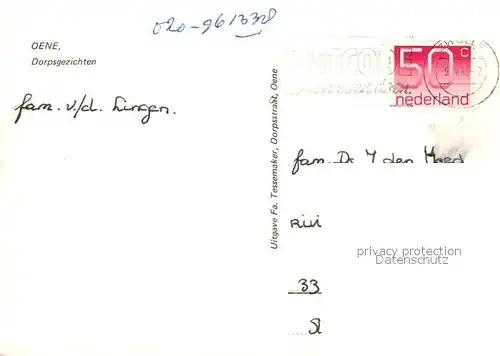 020-961338
OENE,
Dorpsgezichten
50 c
nederland
fam. v/d. Lingen.
Uitgave Fa. Tessemaker, Dorpsstraat, Oene
fam. Dr Y den Hoed
privacy protection
Datenschutz
33